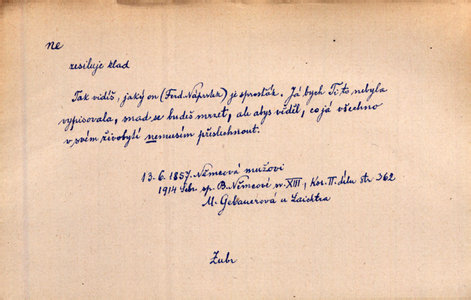 ne
zesiluje klad
Tak vidíš, jaký on (Ferd. Náprstek) je sprosťák. Já bych Ti to nebyla
vypisovala, snad se budeš mrzet, ale abys viděl, co já všechno
v svém živobytí nemusím přislechnout.
13. 6. 1857. Němcová mužovi
1914 Sebr. sp. B. Němcové sv. XIII, Kor. II. dílu str 362
M. Gebauerová u Laichtra
Zubr